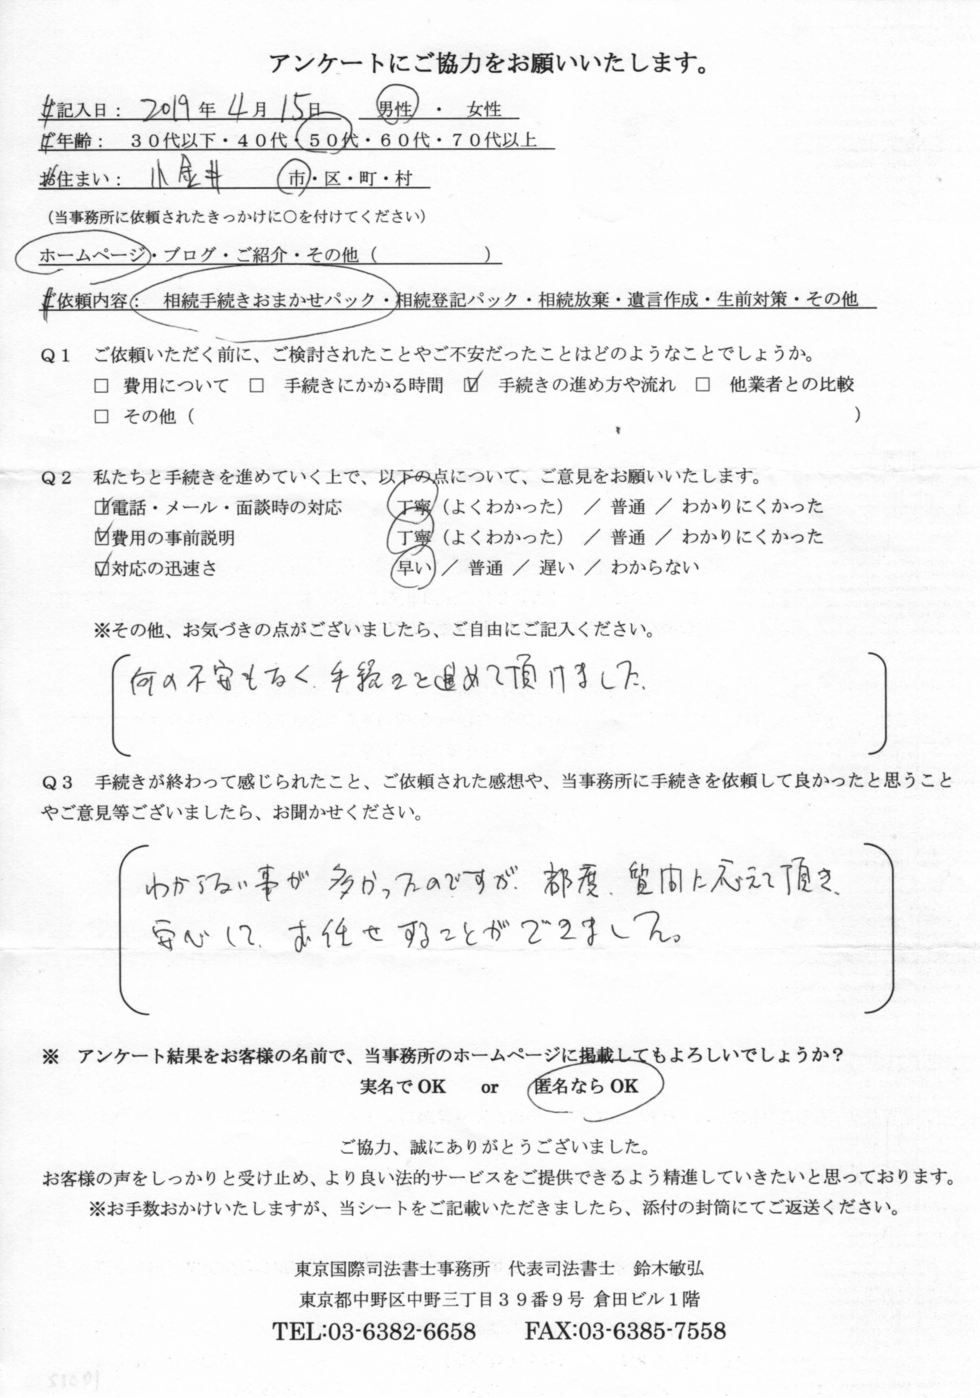 アンケートにご協力をお願いいたします。
ご記入日： 2019年 4月 15日 男性 ・ 女性
ご年齢： 30代以下・40代・50代・60代・70代以上
お住まい： 小金井 市・区・町・村
（当事務所に依頼されたきっかけに○を付けてください）
ホームページ・ブログ・ご紹介・その他（ ）
ご依頼内容： 相続手続きおまかせパック・相続登記パック・相続放棄・遺言作成・生前対策・その他
Q1 ご依頼いただく前に、ご検討されたことやご不安だったことはどのようなことでしょうか。
□ 費用について □ 手続きにかかる時間 ☑ 手続きの進め方や流れ □ 他業者との比較
□ その他（ ）
Q2 私たちと手続きを進めていく上で、以下の点について、ご意見をお願いいたします。
☑電話・メール・面談時の対応 丁寧（よくわかった） ／ 普通 ／ わかりにくかった
☑費用の事前説明 丁寧（よくわかった） ／ 普通 ／ わかりにくかった
☑対応の迅速さ 早い ／ 普通 ／ 遅い ／ わからない
※その他、お気づきの点がございましたら、ご自由にご記入ください。
何の不安もなく、手続きを進めて頂けました。
Q3 手続きが終わって感じられたこと、ご依頼された感想や、当事務所に手続きを依頼して良かったと思うこと
やご意見等ございましたら、お聞かせください。
わからない事が多かったのですが、都度、質問に応えて頂き、
安心して、お任せすることができました。
※ アンケート結果をお客様の名前で、当事務所のホームページに掲載してもよろしいでしょうか？
実名でOK or 匿名ならOK
ご協力、誠にありがとうございました。
お客様の声をしっかりと受け止め、より良い法的サービスをご提供できるよう精進していきたいと思っております。
※お手数おかけいたしますが、当シートをご記載いただきましたら、添付の封筒にてご返送ください。
東京国際司法書士事務所 代表司法書士 鈴木敏弘
東京都中野区中野三丁目39番9号 倉田ビル1階
TEL:03-6382-6658 FAX:03-6385-7558